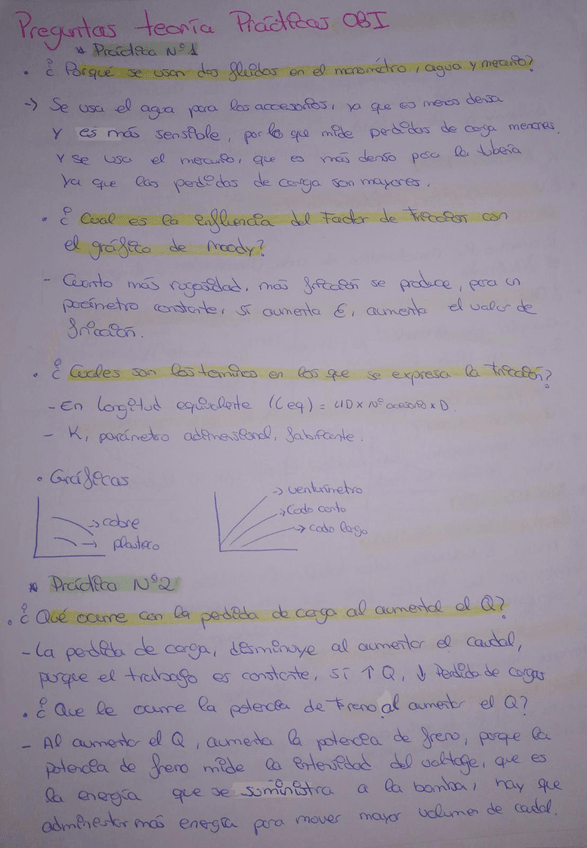 Preguntas teoría Prácticas OBI
* Práctica Nº1
• ¿ Porqué se usan dos fluidos en el manómetro, agua y mercurio?
-> Se usa el agua para los accesorios, ya que es menos densa
y es más sensible, por lo que mide perdidas de carga menores.
y se usa el mercurio, que es más denso para la tubería
ya que las perdidas de carga son mayores.
• ¿ Cual es la influencia del Factor de Fricción con
el gráfico de Moody?
- Cuanto más rugosidad, más fricción se produce, para un
parámetro constante, si aumenta Є, aumenta el valor de
fricción.
• ¿ Cuales son los terminos en los que se expresa la fricción?
- En longitud equivalente (Leq) = L/D x Nº accesorio x D.
- K, parámetro adimensional, fabricante.
• Gráficas
-> venturímetro
-> Codo corto
-> codo largo
-> cobre
-> plástico
* Práctica Nº2
• ¿ Qué ocurre con la perdida de carga al aumentar el Q?
- La perdida de carga, disminuye al aumentar el caudal,
porque el trabajo es constante, si ↑ Q, ↓ Perdida de cargas
• ¿ Que le ocurre la potencia de Freno al aumentar el Q?
- Al aumentar el Q, aumenta la potencia de freno, porque la
potencia de freno mide la intensidad del voltage, que es
la energía que se suministra a la bomba, hay que
administrar más energía para mover mayor volumen de caudal.